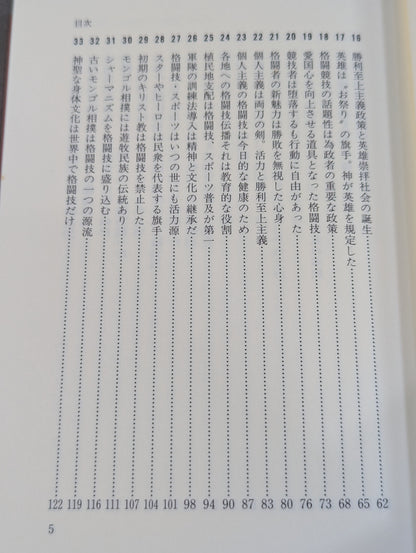 目次
16 勝利至上主義政策と英雄崇拝社会の誕生 62
17 英雄は“お祭り”の旗手。神が英雄を規定した 65
18 格闘競技の話題性は為政者の重要な政策 68
19 愛国心を向上させる道具となった格闘技 73
20 競技者は堕落するも行動に自由があった 76
21 格闘者の新魅力は勝敗を無視した心身 80
22 個人主義は両刀の剣。活力と勝利至上主義 83
23 個人主義の格闘技は今日的な健康のため 87
24 各地への格闘技伝播それは教育的な役割 90
25 植民地支配は格闘技、スポーツ普及が第一 94
26 軍隊の訓練法導入は精神と文化の継承だ 98
27 格闘技・スポーツはいつの世にも活力源 101
28 スターやヒーローは民衆を代表する旗手 104
29 初期のキリスト教は格闘技を禁止した 107
30 モンゴル相撲には遊牧民族の伝統あり 111
31 シャーマニズムを格闘技に盛り込む 116
32 古いモンゴル相撲は格闘技の一つの源流 119
33 神聖な身体文化は世界中で格闘技だけ 122
5